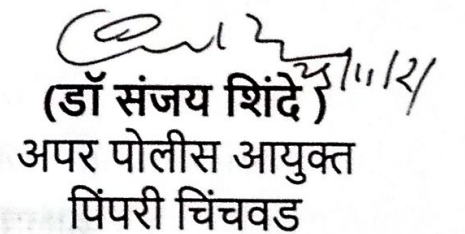 25/11/21
(डॉ संजय शिंदे )
अपर पोलीस आयुक्त
पिंपरी चिंचवड